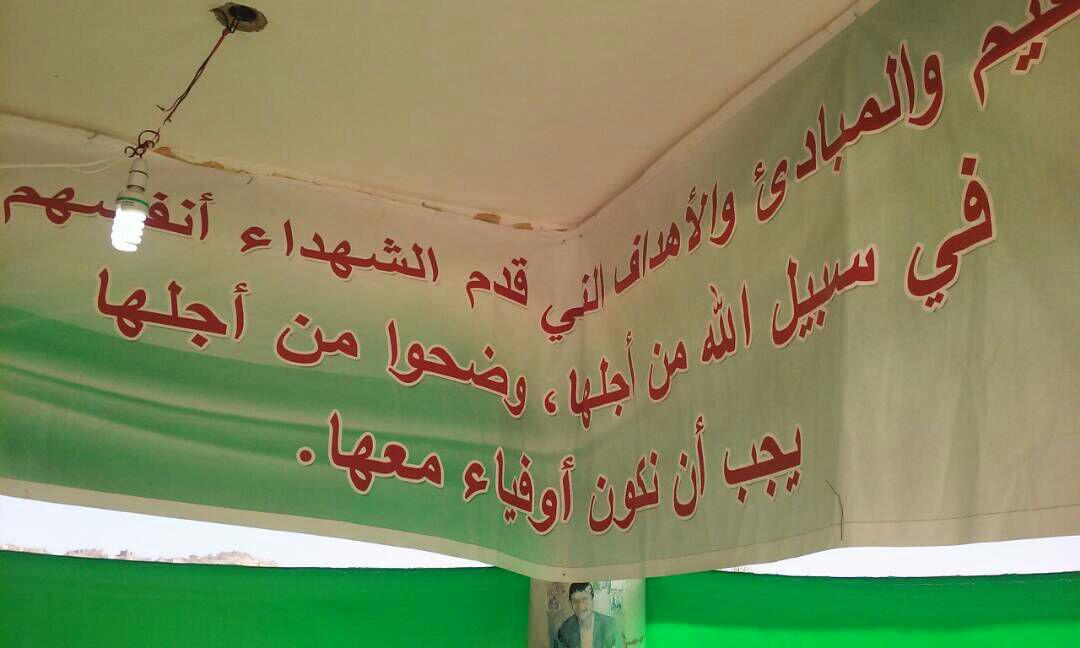 والمبادئ والأهداف التي قدم الشهداء أنفسهم
في سبيل الله من أجلها، وضحوا من أجلها
يجب أن نكون أوفياء معها.